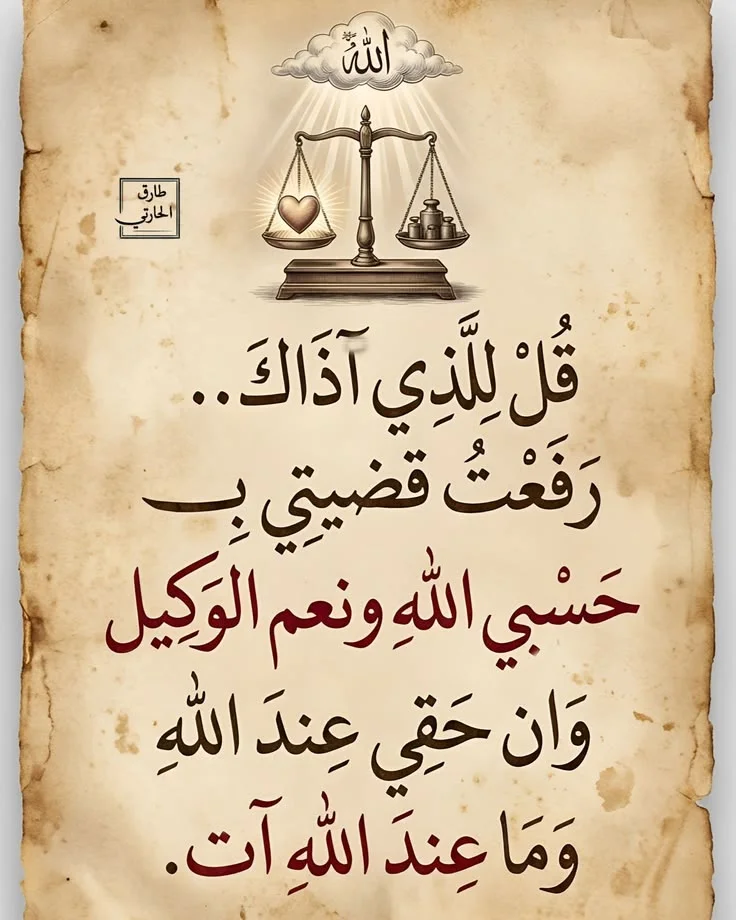 الله
طارق
الحارثي
قُلْ لِلَّذِي آذَاكَ..
رَفَعْتُ قضيتِي بِـ
حَسْبي اللهِ ونعم الوَكِيل
وَان حَقِي عِندَ اللهِ
وَمَا عِندَ اللهِ آت.